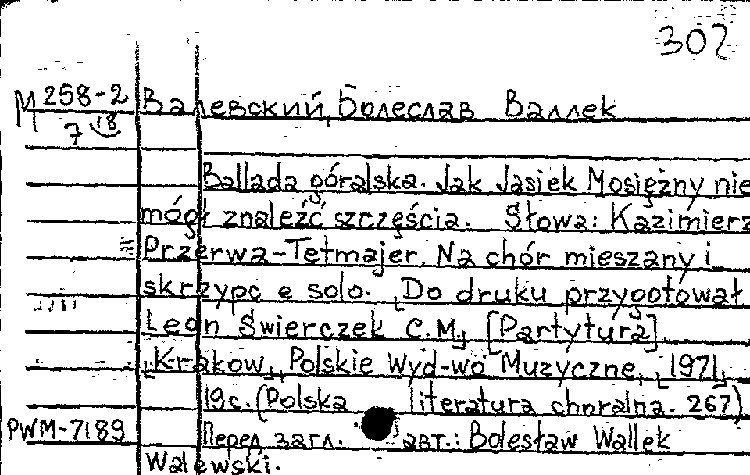 302
М 258-2 Валевский, Болеслав Валлек
7 18
Ballada góralska. Jak Jasiek Mosiężny nie
mógł znaleźć szczęścia. Słowa: Kazimierz
Przerwa-Tetmajer. Na chór mieszany i
skrzypc e solo. Do druku przygotował
Leon Świerczek C.M. [Partytura].
Kraków, Polskie Wyd-wo Muzyczne, 1971,
19 c. (Polska literatura choralna. 267)
PWM-7189 Перед загл. авт.: Bolesław Wallek
Walewski.